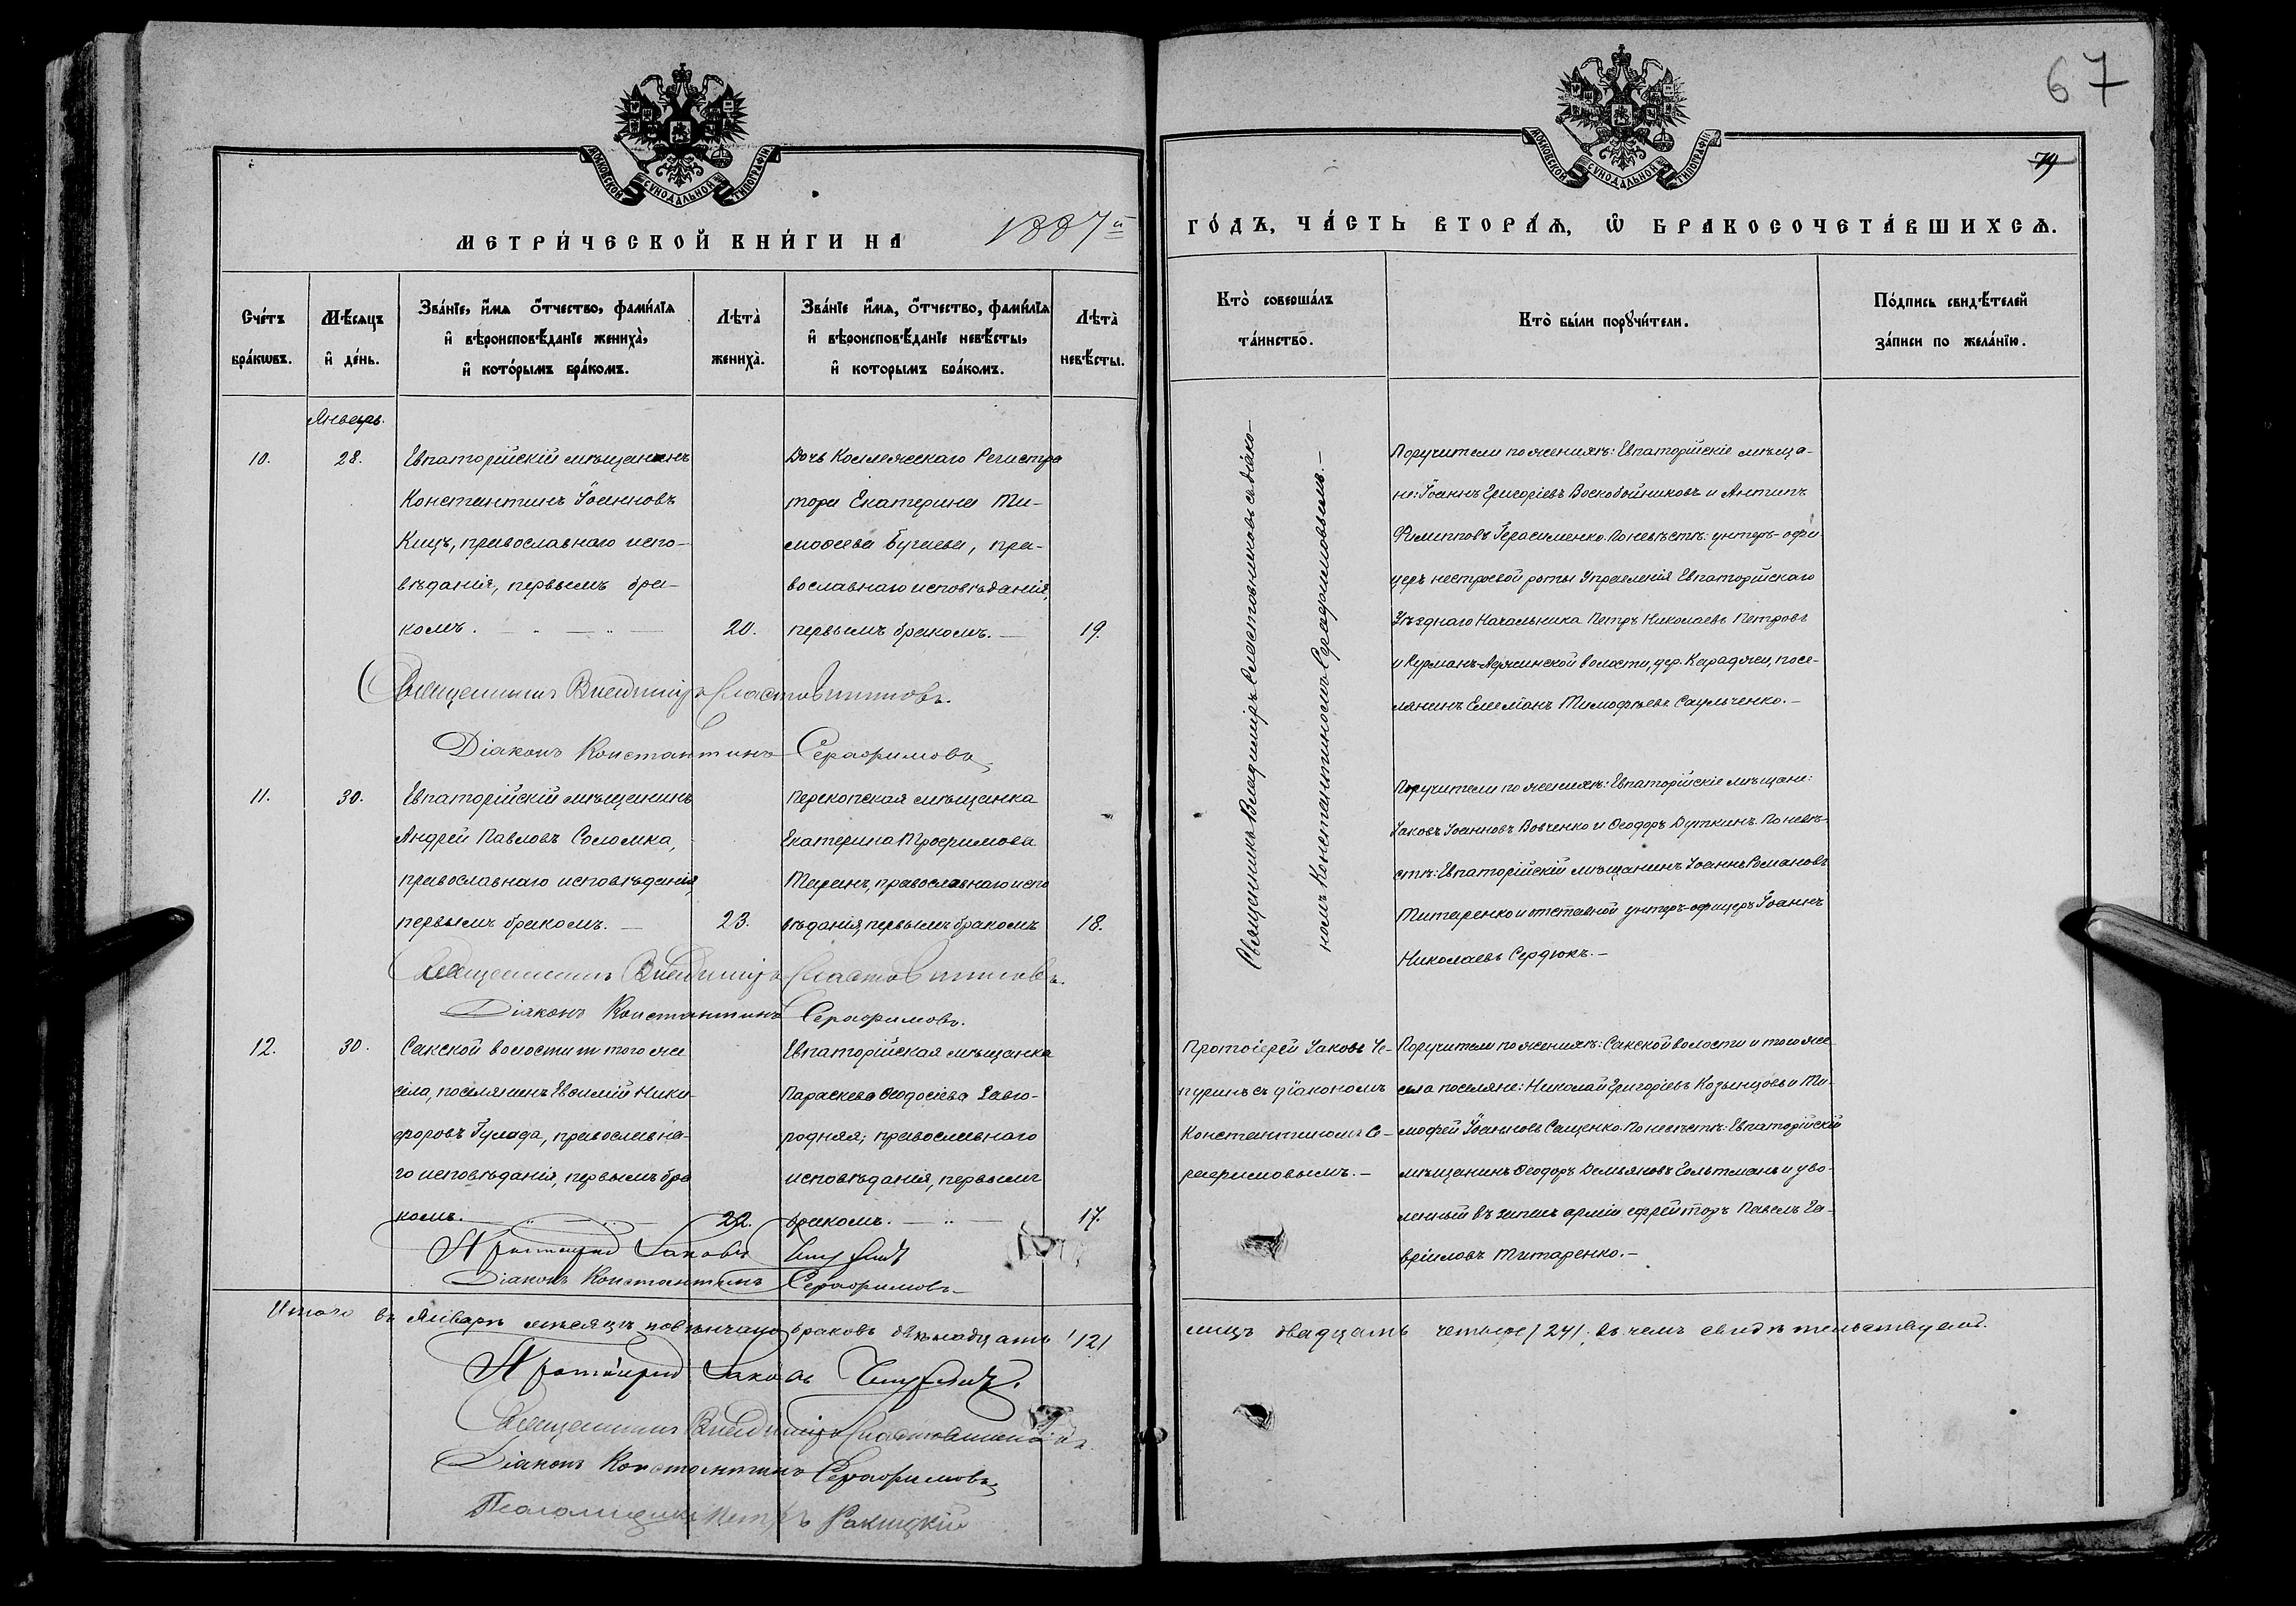 67
МОСКОВСКОЙ СѴНОДАЛЬНОЙ ТИПОГРАФІИ
МОСКОВСКОЙ СѴНОДАЛЬНОЙ ТИПОГРАФІИ
74
МЕТРИ́ЧЕСКОЙ КНИ́ГИ НА 1887й
ГО́ДЪ, ЧА́СТЬ ВТОРА́Ѧ, Ѡ БРАКОСОЧЕТА́ВШИХСѦ.
Сче́тъ
бра́кѡвъ.
Мѣ́сяцъ
и҆ де́нь.
Зва́нїе, и҆́мя о҆́тчество, фами́лїя
и҆ вѣроисповѣ́данїе жениха̀,
и҆ кото́рымъ бра́комъ.
Лѣта̀
жениха̀.
Зва́нїе и҆́мя, о҆́тчество, фами́лїя
и҆ вѣроисповѣ́данїе невѣ́сты,
и҆ которымъ бра́комъ.
Лѣта̀
невѣ́сты.
Кто̀ соверша́лъ
та́инство.
Кто̀ бы́ли порꙋчи́тели.
По́дпись свидѣ́телей
за́писи по жела́нїю.
Январь.
10.
28.
Евпаторійскій мѣщанинъ
Константинъ Іоанновъ
Кицъ, православнаго испо-
вѣданія, первымъ бра-
комъ.
20.
Дочь Коллежскаго Регистра
тора Екатерина Ти-
моѳеева Бугаева, пра-
вославнаго исповѣданія,
первымъ бракомъ.
19.
Священникъ Владиміръ Сластовниковъ съ діако-
номъ Константиномъ Серафимовымъ.
Поручители по женихѣ: Евпаторійскіе мѣща-
не: Іоаннъ Григоріевъ Воскобойниковъ и Антипъ
Филипповъ Герасименко. По невѣстѣ: унтеръ-офи
церъ нестроевой роты Управленія Евпаторійскаго
Уѣзднаго Начальника Петръ Николаевъ Петровъ
и Курманъ-Аджинской волости, дер. Караджи, посе-
лянинъ Емеліанъ Тимофѣевъ Саульченко.
Священникъ Владиміръ Сластовниковъ.
Діаконъ Константинъ Серафимовъ
11.
30.
Евпаторійскій мѣщанинъ
Андрей Павловъ Соломка,
православнаго исповѣданія
первымъ бракомъ.
23.
Перекопская мѣщанка
Екатерина Трофимова
Таранъ, православнаго испо
вѣданія, первымъ бракомъ
18.
Поручители по женихѣ: Евпаторійскіе мѣщане:
Іаковъ Іоанновъ Вовченко и Ѳеодоръ Дуткинъ. По невѣ-
стѣ: Евпаторійскій мѣщанинъ Іоаннъ Романовъ
Титаренко и отставной унтеръ-офицеръ Іоаннъ
Николаевъ Сердюкъ.
Священникъ Владиміръ Сластовниковъ.
Діаконъ Константинъ Серафимовъ.
12.
30.
Сакской волости и того же
села, поселянинъ Евѳимій Ники-
форовъ Гулада, православна-
го исповѣданія, первымъ бра
комъ.
22.
Евпаторійская мѣщанка
Параскева Ѳеодосіева Заго-
родняя; православнаго
исповѣданія, первымъ
бракомъ.
17.
Протоіерей Іаковъ Че-
пуринъ съ діакономъ
Константиномъ Се-
рафимовымъ.
Поручители по женихѣ: Сакской волости и того же
села поселяне: Николай Григоріевъ Козынцовъ и Ти-
мофей Іоанновъ Сащенко. По невѣстѣ: Евпаторійскій
мѣщанинъ Ѳеодоръ Демьяновъ Гольтманъ и уво-
ленный въ запасъ арміи ефрейторъ Павелъ Га-
вріиловъ Титаренко.
Протоіерей Іаковъ Чепуринъ
Діаконъ Константинъ Серафимовъ
Итого въ Январѣ мѣсяцѣ повѣнчано браковъ двѣнадцать /12/
лицъ двадцать четыре /24/. въ чемъ свидѣтельствуемъ.
Протоіерей Іаковъ Чепуринъ.
Священникъ Владиміръ Сластовниковъ.
Діаконъ Константинъ Серафимовъ
Псаломщикъ Петръ Ракицкій